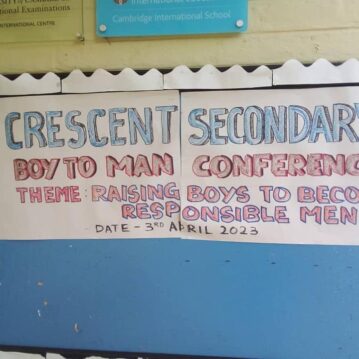 onal Examinations
INTERNATIONAL CENTRE
Cambridge International School
CRESCENT SECONDAR
BOY TO MAN CONFERENC
THEME: RAISING BOYS TO BECO
RESPONSIBLE MEN
- DATE - 3RD APRIL 2023